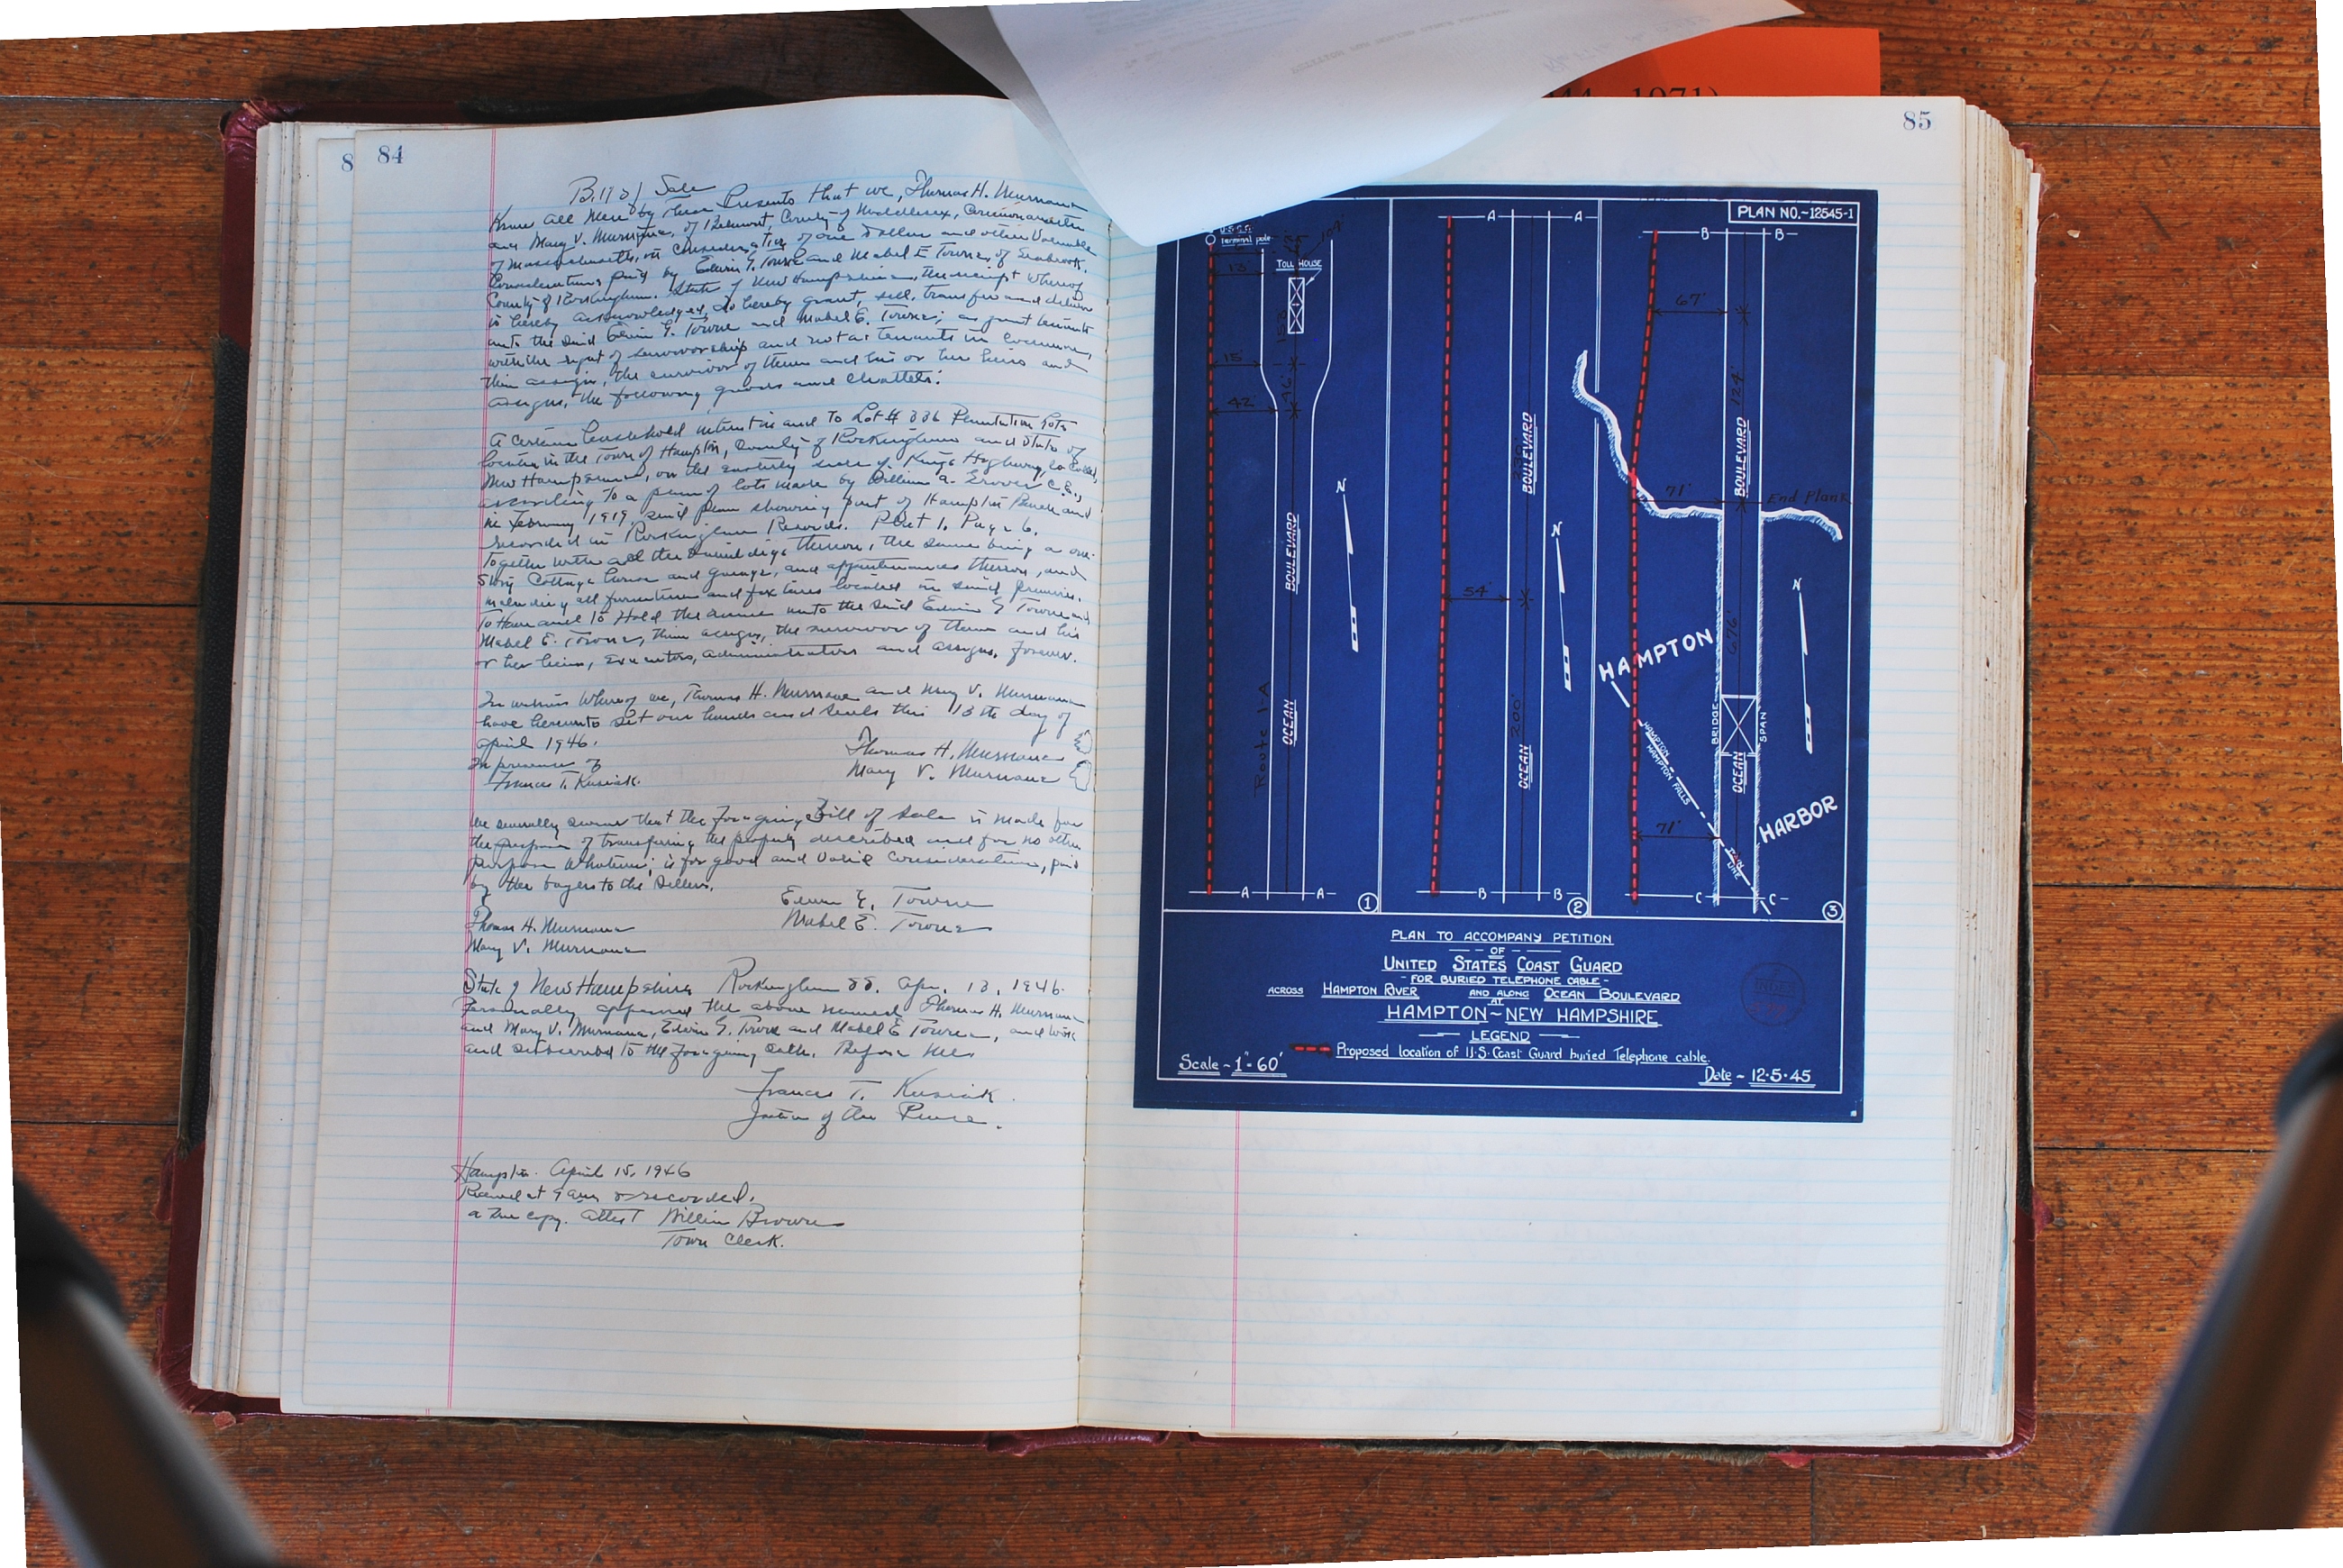 84
Bill of Sale
Know all Men by these Presents that we, Thomas H. Murnane
and Mary V. Murnane, of Belmont, County of Middlesex, Commonwealth
of Massachusetts, in consideration of one Dollar and other Valuable
Considerations paid by Edwin G. Towne and Mabel E Towne, of Seabrook,
County of Rockingham, State of New Hampshire, the receipt whereof
is hereby acknowledged, do hereby grant, sell, transfer and deliver
unto the said Edwin G. Towne and Mabel E. Towne; as joint tenants
with the right of survivorship and not as tenants in common,
their assigns, the survivor of them and his or her heirs and
assigns, the following goods and chattels:
A certain leasehold interest in and to Lot # 336 Plantation Lots
located in the Town of Hampton, County of Rockingham and State of
New Hampshire, on the easterly side of Kings Highway, so called,
according to a plan of lots made by William A. Grover C.E.,
in February 1919, said plan showing part of Hampton Beach and
recorded in Rockingham Records. Plat 1, Page 6.
Together with all the buildings thereon, the same being a one-
story Cottage house and garage, and appurtenances thereon, and
including all furniture and fixtures located in said premises.
To Have and to Hold the same unto the said Edwin G Towne and
Mabel E. Towne, their assigns, the survivor of them and his
or her heirs, executors, administrators and assigns, forever.
In witness Whereof we, Thomas H. Murnane and Mary V. Murnane
have hereunto set our hands and seals this 13th day of
April 1946.
In presence of
Thomas H. Murnane
Frances T. Kusiak.
Mary V. Murnane
We severally swear that the foregoing Bill of Sale is made for
the purpose of transferring the property described and for no other
purpose whatever; is for good and valid consideration, paid
by the buyers to the sellers.
Edwin G. Towne
Mabel E. Towne
Thomas H. Murnane
Mary V. Murnane
State of New Hampshire Rockingham SS. Apr. 13, 1946.
Personally appeared the above named Thomas H. Murnane
and Mary V. Murnane, Edwin G. Towne and Mabel E Towne, and
and subscribed to the foregoing oath. Before me
Frances T. Kusiak
Justice of the Peace.
Hampton. April 15, 1946
Received at 9 am & recorded.
a true copy. Attest William Brown
Town Clerk.
85
PLAN NO.-12545-1
U.S.C.G.
terminal pole
13'
TOLL HOUSE
15'
42'
N
BOULEVARD
OCEAN
Route 1-A
A
A
1
A
A
BOULEVARD
N
54'
2200'
OCEAN
B
B
2
B
B
67'
124'
BOULEVARD
71'
End Plank
N
HAMPTON
676'
BRIDGE
SPAN
HAMPTON
HAMPTON FALLS
OCEAN
71'
HARBOR
TOWN LINE
C
C
3
PLAN TO ACCOMPANY PETITION
OF
UNITED STATES COAST GUARD
- FOR BURIED TELEPHONE CABLE -
ACROSS HAMPTON RIVER AND ALONG OCEAN BOULEVARD
AT
HAMPTON ~ NEW HAMPSHIRE
LEGEND
Proposed location of U.S. Coast Guard buried Telephone cable.
Scale ~ 1"-60'
Date ~ 12-5-45